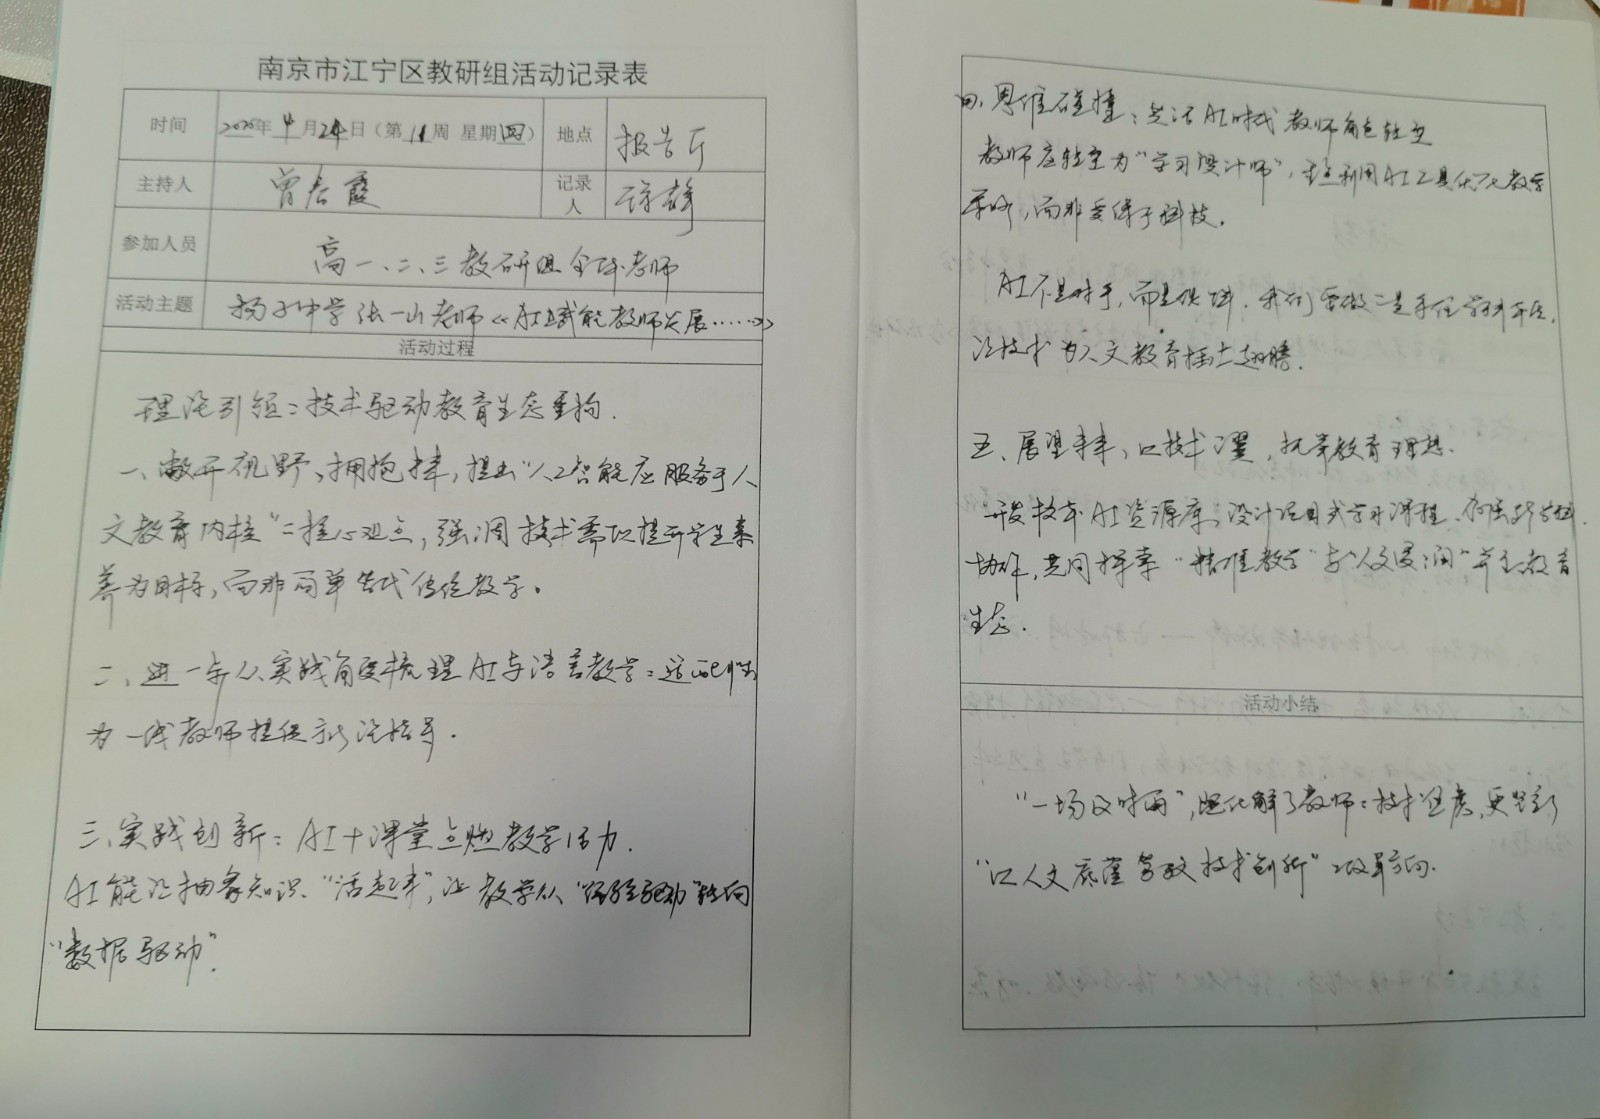 南京市江宁区教研组活动记录表
时间 2025年4月24日(第11周 星期四) 地点 报告厅
主持人 曾 霞 记录人
参加人员 高一、二、三教研组全体老师
活动主题 扬子中学张一山老师《AI赋能教师发展……》
活动过程
理论引领:技术驱动教育生态重构.
一、敞开视野、拥抱 ,提出"人工智能应服务于人
文教育内核"之核心观点,强调技术需以提升学生素
养为目标,而非简单替代传统教学。
二、进一步从实践角度梳理AI与语言教学之适配性
为一线教师提供 论指导.
三.实践创新:AI+课堂点燃教学活力.
AI能让抽象知识"活起来",让教学从"经验驱动"转向
"数据驱动".
四.思维碰撞:共话AI时代教师角色转变
教师应转变为"学习设计师",主动利用AI工具优化教学
策略,而非受缚于科技。
AI不是对手,而是伙伴.我们要做之是 ,
让技术为人文教育插上翅膀.
五、展望未来,以技术之翼,托举教育理想.
开发校本AI资源库、设计项目式学习课程、
协作,共同探索"精准教学"与"人文浸润"并 教育
生态.
活动小结
"一场及时雨",既化解了教师之技术焦虑,更 了
"以人文底蕴驾驭技术创新"之改革方向.